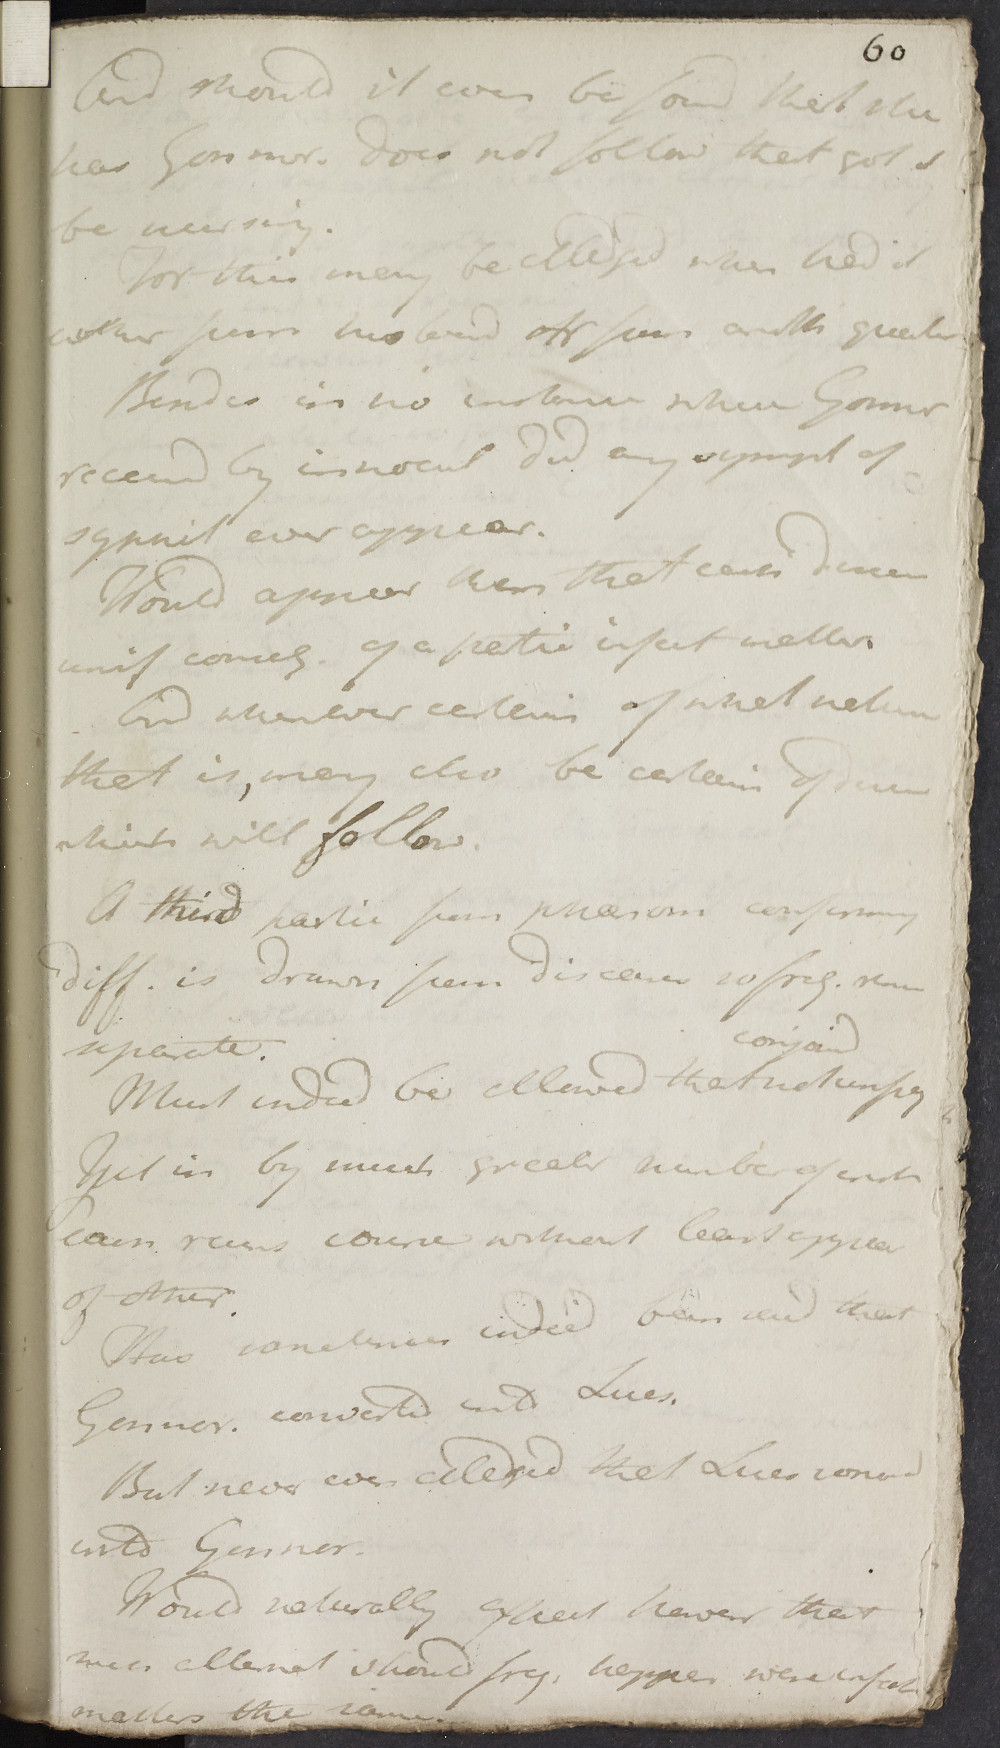 60
And should it even be found that she
has Gonnor. does not follow that got it
be nursing.
For this may be alledged when had it
from husband or from another quarter
Besides in no instance where Gonnor
receivd by innocul did any sympt of
syphil ever appear.
Would appear then that each disease
unif conseq. of a partic infect matter.
And whenever certain of what nature
that is, may also be certain of disease
which will follow.
A third partic from phænom confirming
diff. is drawn from diseases so freq. run
separate.
conjoind
Must indeed be allowed that not unfreq
Yet in by much greater number of inst
each runs course without least appear
of other.
Has sometimes indeed been said that
Gonnor. converted into Lues.
But never even alledged that Lues convert
into Gonnor.
Would naturally expect however that
such alternat should freq. happen were infect
matters the same.